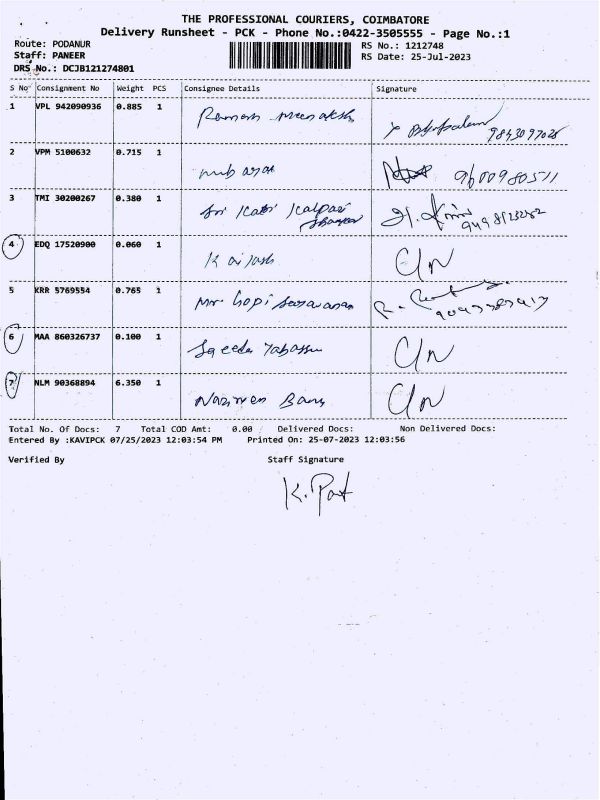 THE PROFESSIONAL COURIERS, COIMBATORE
Delivery Runsheet - PCK - Phone No.:0422-3505555 - Page No.:1
Route: PODANUR
RS No.: 1212748
Staff: PANEER
RS Date: 25-Jul-2023
DRS No.: DCJB121274801
S No Consignment No Weight PCS Consignee Details Signature
1 VPL 942090936 0.885 1
9843097028
2 VPM 5100632 0.715 1
9600980511
3 TMI 30200267 0.380 1 Sri
4 EDQ 17520900 0.060 1 Kailash C/N
5 KRR 5769554 0.765 1 Mr. Gopi Saravanan
6 MAA 860326737 0.100 1 Saeeda C/N
7 NLM 90368894 6.350 1 C/N
Total No. Of Docs: 7 Total COD Amt: 0.00 Delivered Docs: Non Delivered Docs:
Entered By :KAVIPCK 07/25/2023 12:03:54 PM Printed On: 25-07-2023 12:03:56
Verified By Staff Signature